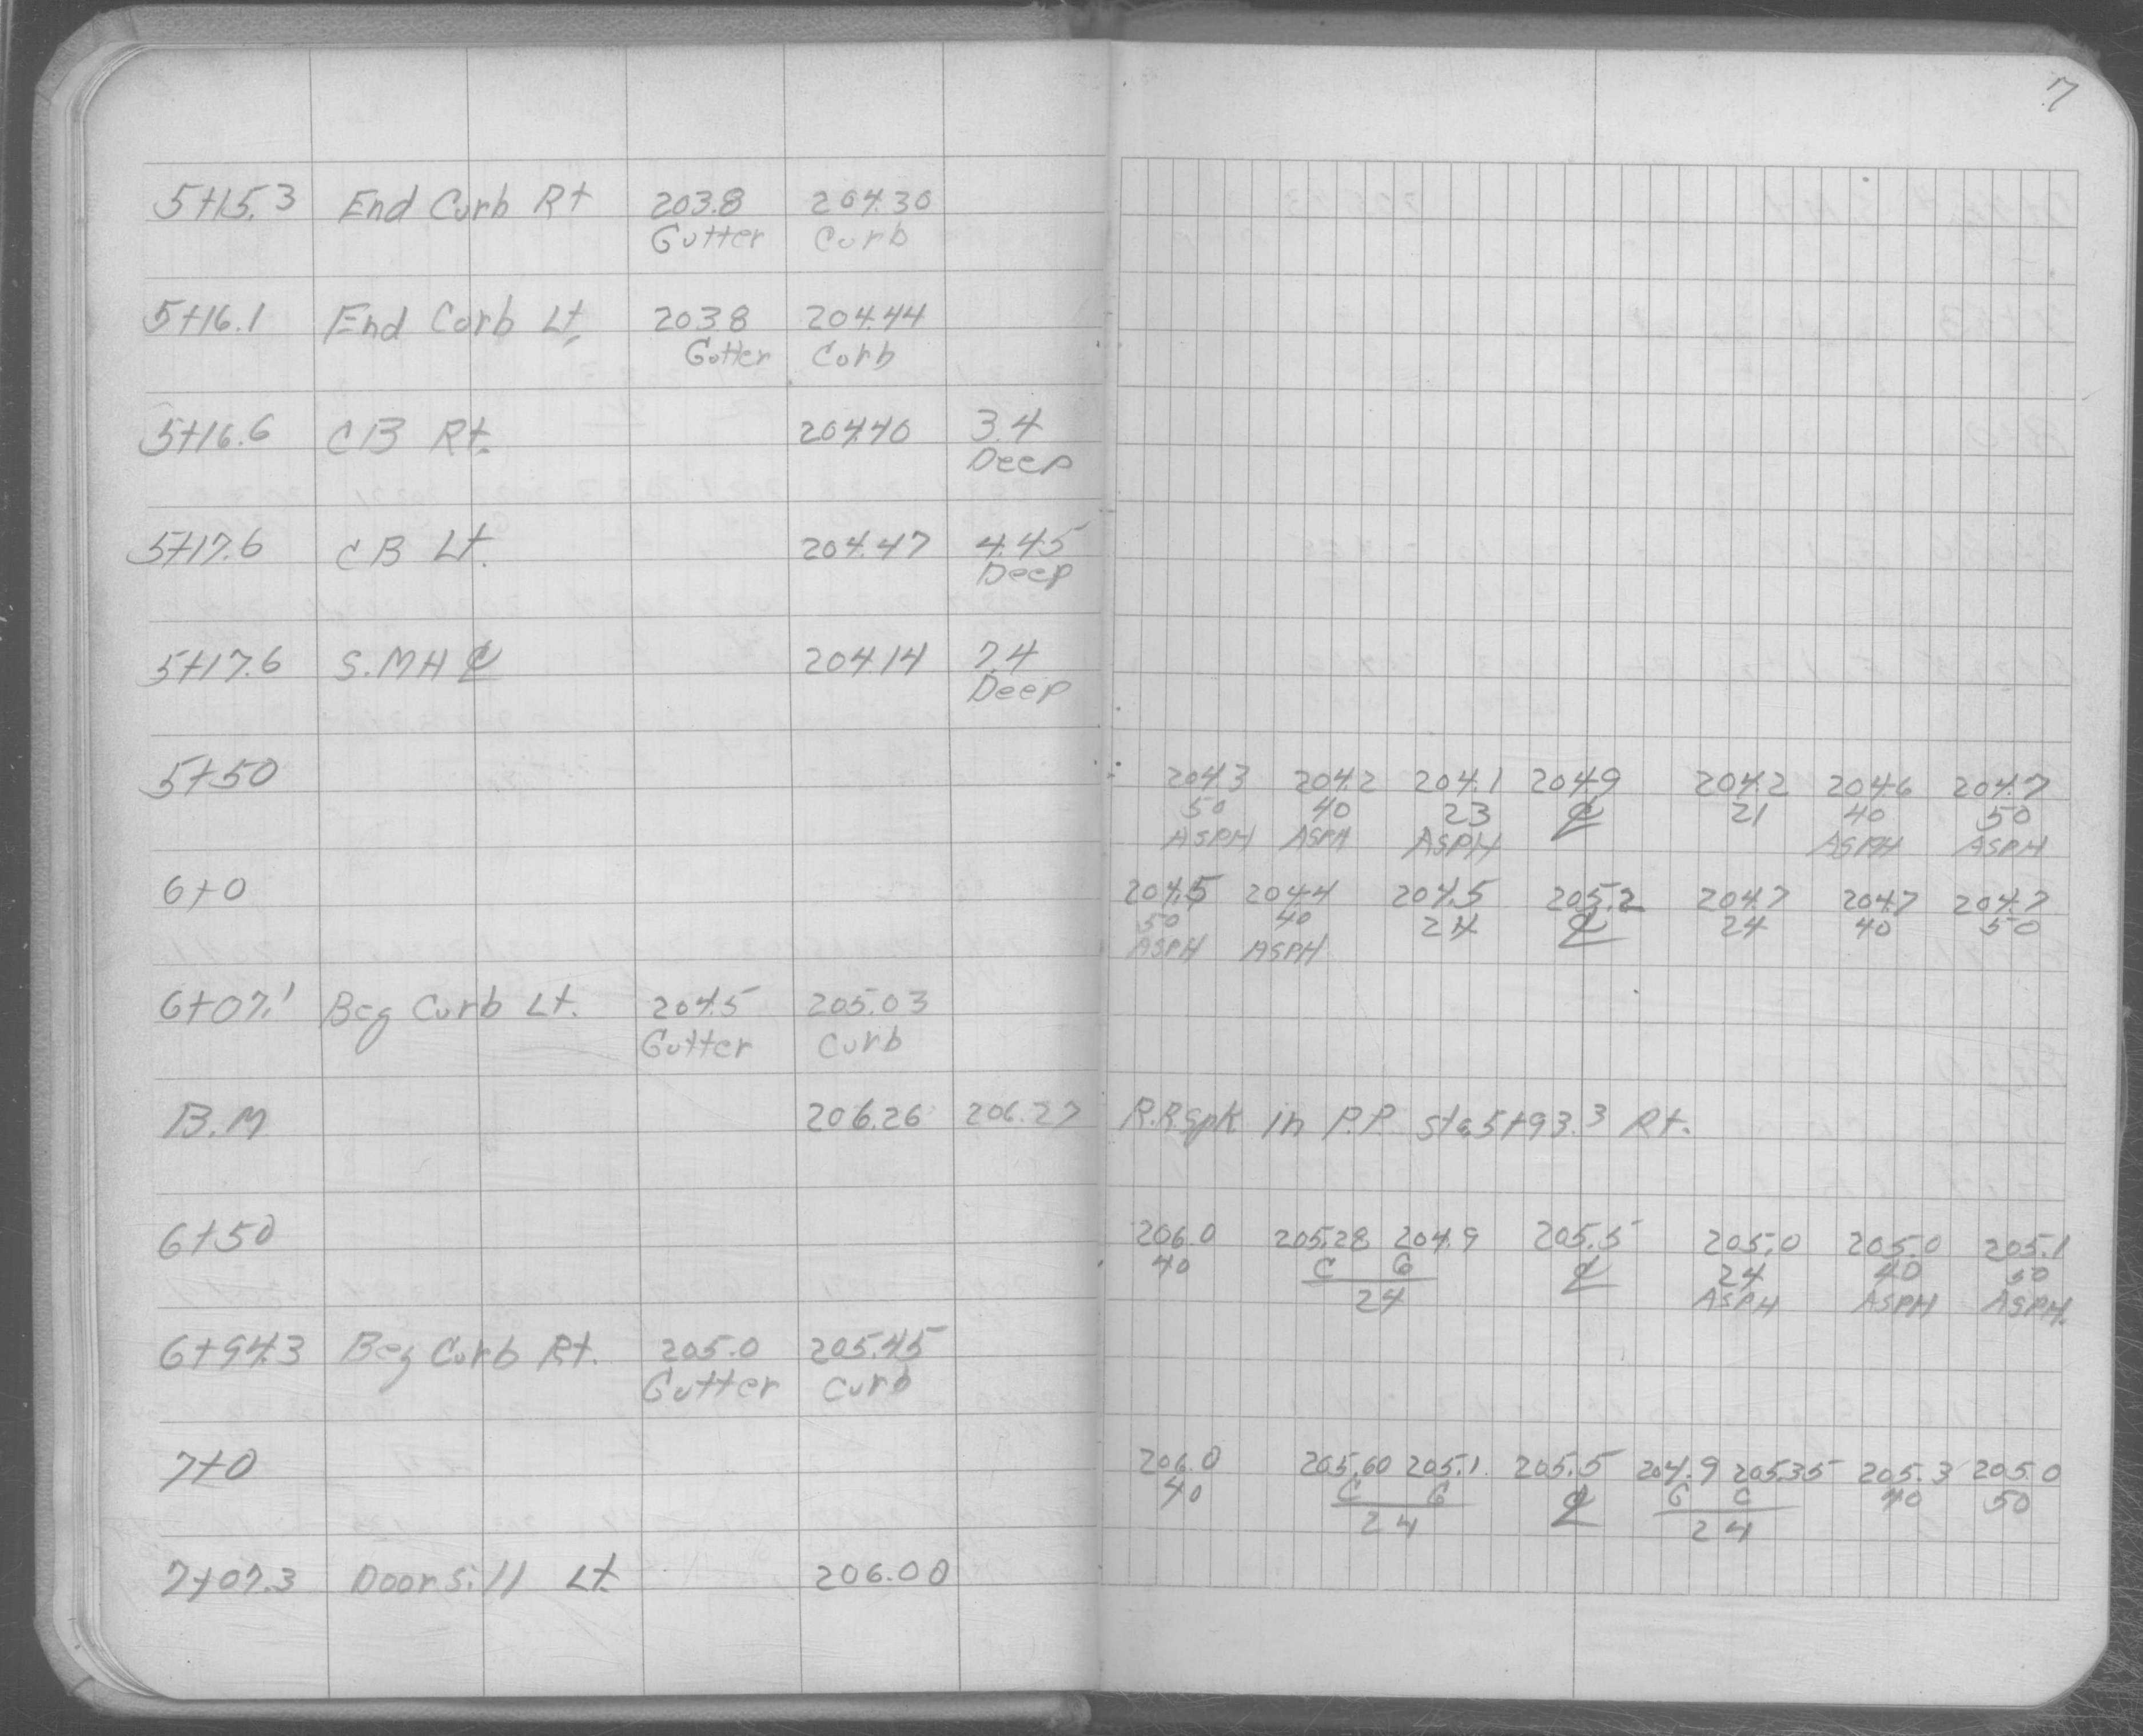 7
5+15.3 End Curb Rt 203.8 204.30
Gutter Curb
5+16.1 End Curb Lt. 203.8 204.44
Gutter Curb
5+16.6 CB Rt. 204.40 3.4
Deep
5+17.6 CB Lt. 204.47 4.45
Deep
5+17.6 S.MH ℄ 204.14 7.4
Deep
5+50 204.3 204.2 204.1 204.9 204.2 204.6 204.7
50 40 23 ℄ 21 40 50
ASPH ASPH ASPH ASPH ASPH
6+0 204.5 204.4 204.5 205.2 204.7 204.7 204.7
50 40 24 ℄ 24 40 50
ASPH ASPH
6+07.1 Beg Curb Lt. 204.5 205.03
Gutter Curb
B.M 206.26 206.27 R.R.Spk in P.P. sta.5+93.3 Rt.
6+50 206.0 205.28 204.9 205.5 205.0 205.0 205.1
40 C G ℄ 24 40 50
24 ASPH ASPH ASPH.
6+94.3 Beg Curb Rt. 205.0 205.45
Gutter Curb
7+0 206.0 205.60 205.1 205.5 204.9 205.35 205.3 205.0
40 C G ℄ G C 40 50
24 24
7+07.3 Doorsill Lt. 206.00